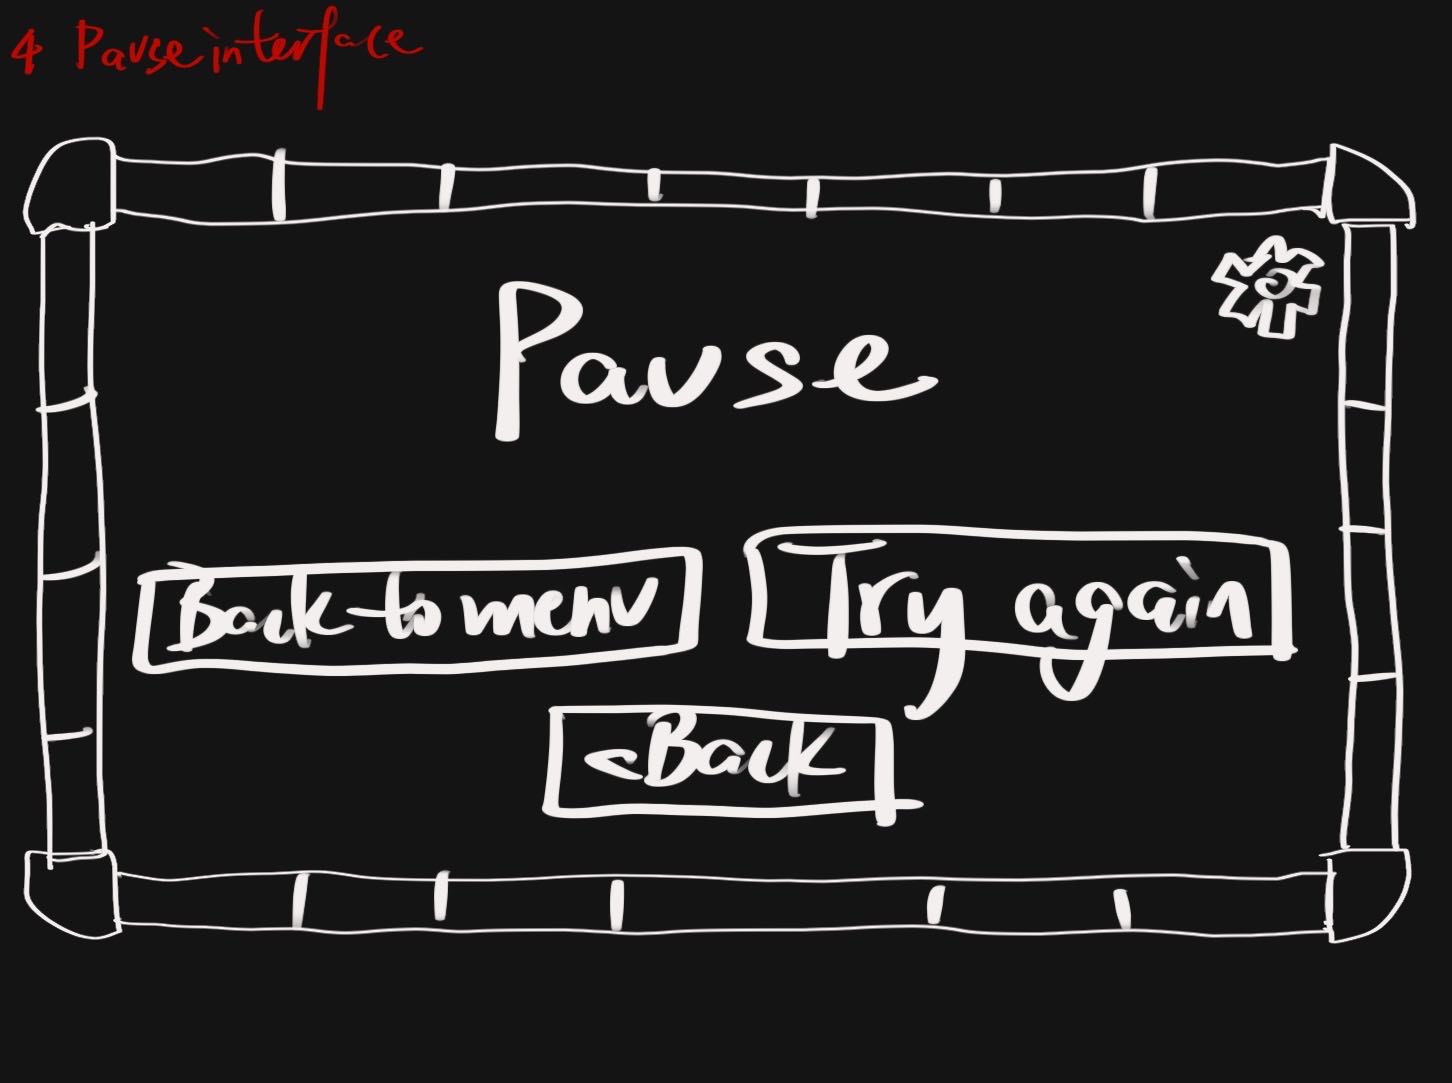 4 Pause interface
Pause
Back to menu
Try again
<Back